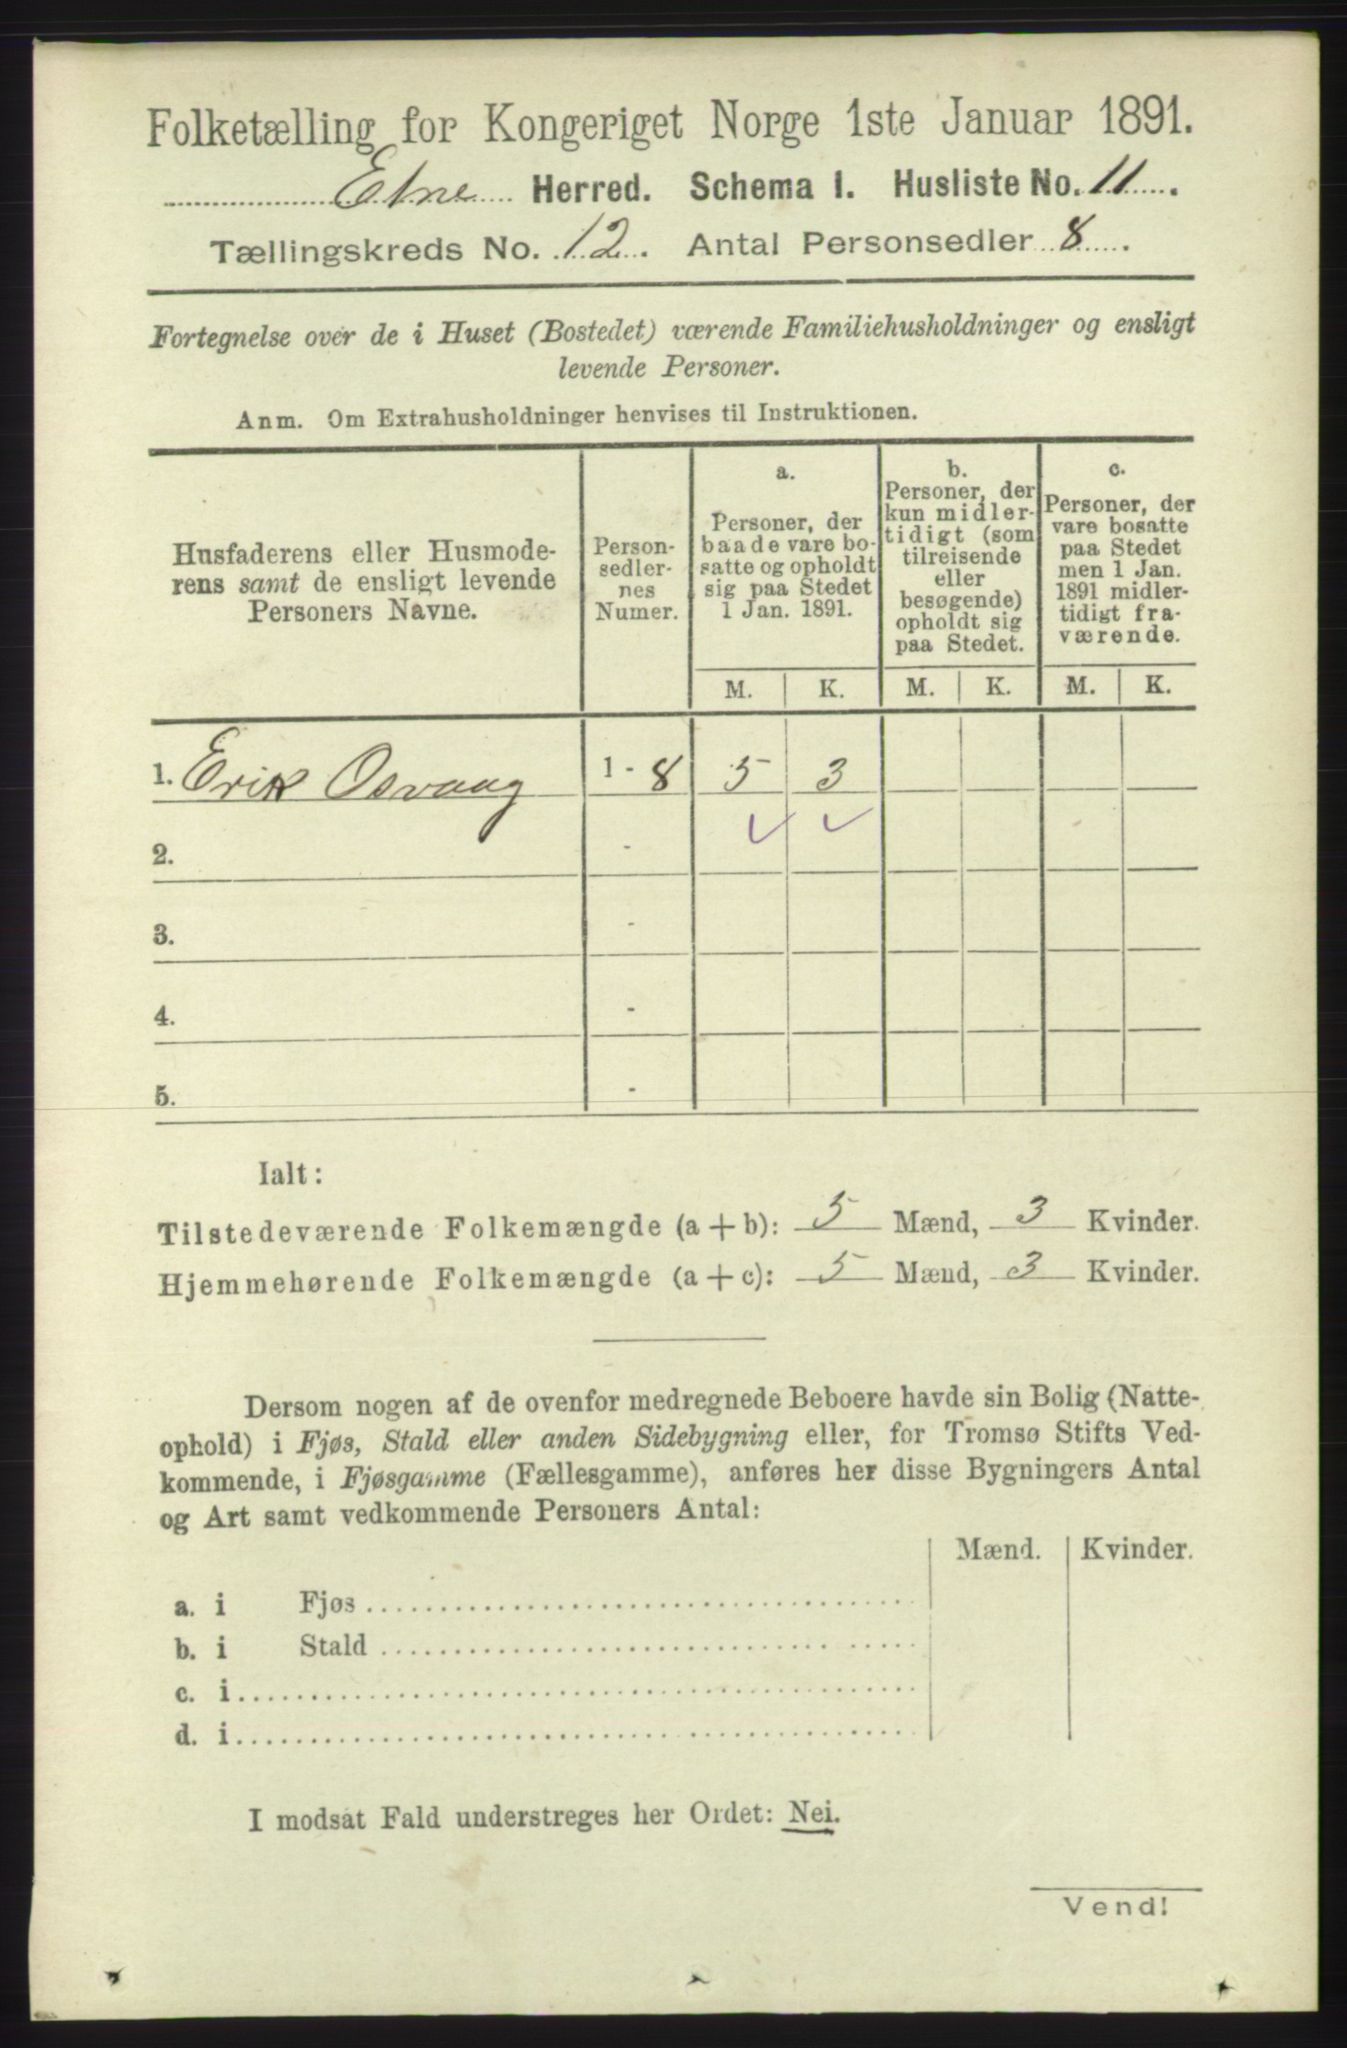 Folketælling for Kongeriget Norge 1ste Januar 1891.
Etne Herred. Schema I. Husliste No. 11.
Tællingskreds No. 12. Antal Personsedler 8.
Fortegnelse over de i Huset (Bostedet) værende Familiehusholdninger og ensligt
levende Personer.
Anm. Om Extrahusholdninger henvises til Instruktionen.
Husfaderens eller Husmode-
rens samt de ensligt levende
Personers Navne.
Person-
sedler-
nes
Numer.
a.
Personer, der
baade vare bo-
satte og opholdt
sig paa Stedet
1 Jan. 1891.
b.
Personer, der
kun midler-
tidigt (som
tilreisende
eller
besøgende)
opholdt sig
paa Stedet.
c.
Personer, der
vare bosatte
paa Stedet
men 1 Jan.
1891 midler-
tidigt fra-
værende.
M. K. M. K. M. K.
1. Erik Osvaag 1 - 8 5 3
2. -
3. -
4. -
5. -
Ialt:
Tilstedeværende Folkemængde (a + b): 5 Mænd, 3 Kvinder.
Hjemmehørende Folkemængde (a + c): 5 Mænd, 3 Kvinder.
Dersom nogen af de ovenfor medregnede Beboere havde sin Bolig (Natte-
ophold) i Fjøs, Stald eller anden Sidebygning eller, for Tromsø Stifts Ved-
kommende, i Fjøsgamme (Fællesgamme), anføres her disse Bygningers Antal
og Art samt vedkommende Personers Antal:
Mænd. Kvinder.
a. i Fjøs
b. i Stald
c. i
d. i
I modsat Fald understreges her Ordet: Nei.
Vend!